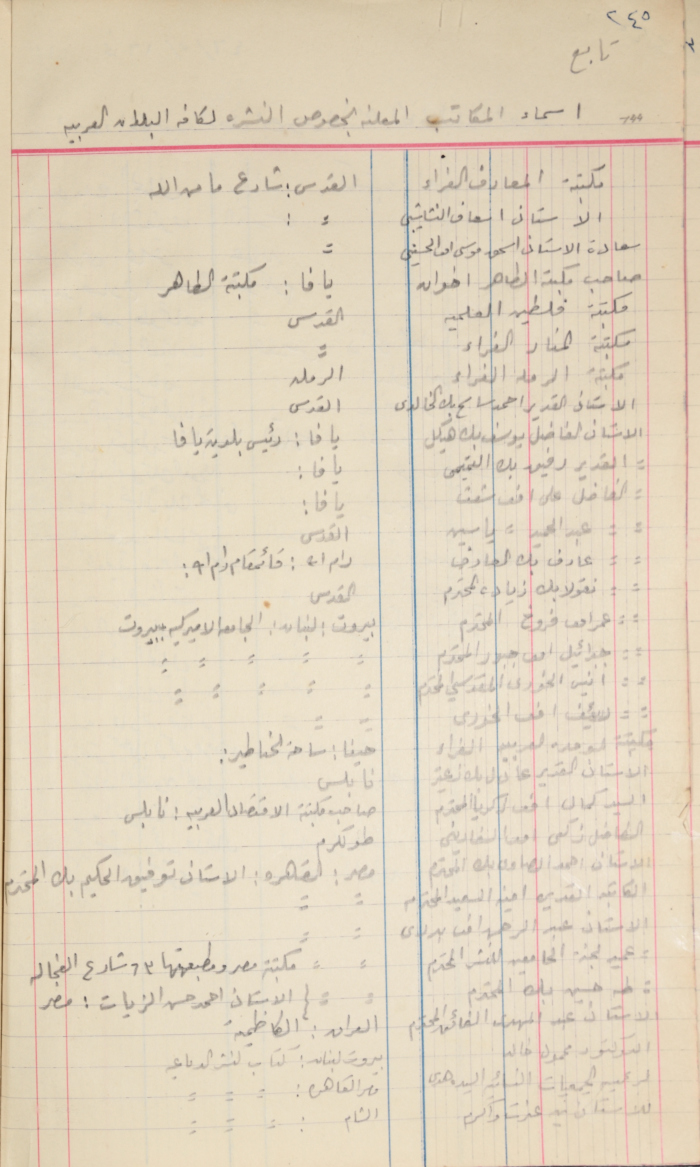 ٢٤٥
تابع
اسماء المكاتب المعلنه بخصوص النشره لكافه البلدان العربيه
مكتبة المعارف الغراء القدس : شارع مامن الله
الاستاذ اسعاف النشاشيبي = :
سعادة الاستاذ اسحق موسى افـ الحسيني =
صاحب مكتبة الطاهر اخوان يافا : مكتبة الطاهر
مكتبة فلسطين العلميه القدس
مكتبة المنار الغراء =
مكتبة الرمله الغراء الرمله
الاستاذ القدير احمد سامح بك الخالدى القدس
الاستاذ الفاضل يوسف بك هيكل يافا : رئيس بلدية يافا
= القدير رفيق بك التميمى يافا :
= الفاضل على افـ يافا :
= = عبد الحميد = ياسين القدس
= = عارف بك العارف رام الله : قائمقام رام الله :
= = نقولا بك زياده المحترم القدس
= = عمر افـ فروخ المحترم بيروت : لبنان : الجامعه الاميركيه ببيروت
= = جبرائيل افـ جبور المحترم = = = = =
= = انيس الخورى المقدسي المحترم = = = = =
= = افـ الخورى = =
مكتبة الوحده العربيه الغراء حيفا : ساحة الخناطير :
الاستاذ القدير عادل بك زعيتر نابلس
السيد كمال افـ المحترم صاحب مكتبة الاقتصاد العربيه : نابلس
الفاضل زكى افـ طولكرم
الاستاذ احمد الصاوى بك المحترم مصر : القاهره : الاستاذ توفيق الحكيم بك المحترم
الكاتب القدير امين السعيد المحترم = =
الاستاذ عبد الرحمن افـ = =
= عميد لجنة الجامعيين للنشر المحترم = = مكتبة مصر ومطبعتها ٦٣ شارع الفجاله
= طه حسين بك المحترم = = الاستاذ احمد حسن الزيات : مصر
الاستاذ عبد المحترم العراق : الكاظمية
الدكتور خالد بيروت لبنان :
القاهره : = = =
للاستاذ الشام : = = =